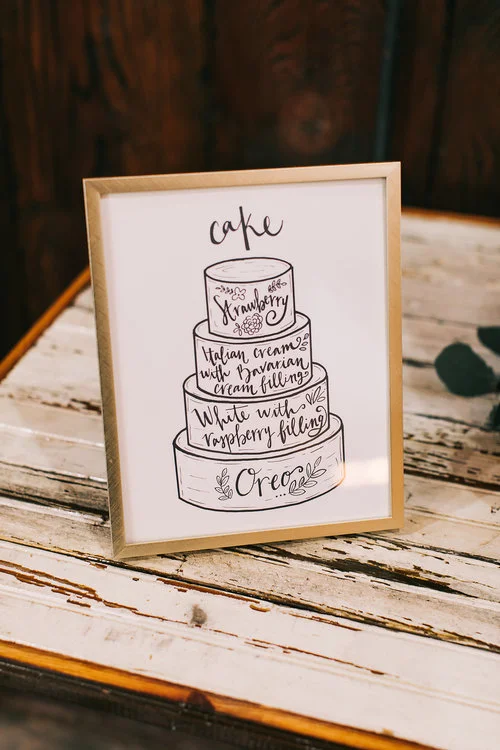 cake
Strawberry
Italian cream
with Bavarian
cream filling
White with
raspberry filling
Oreo
...